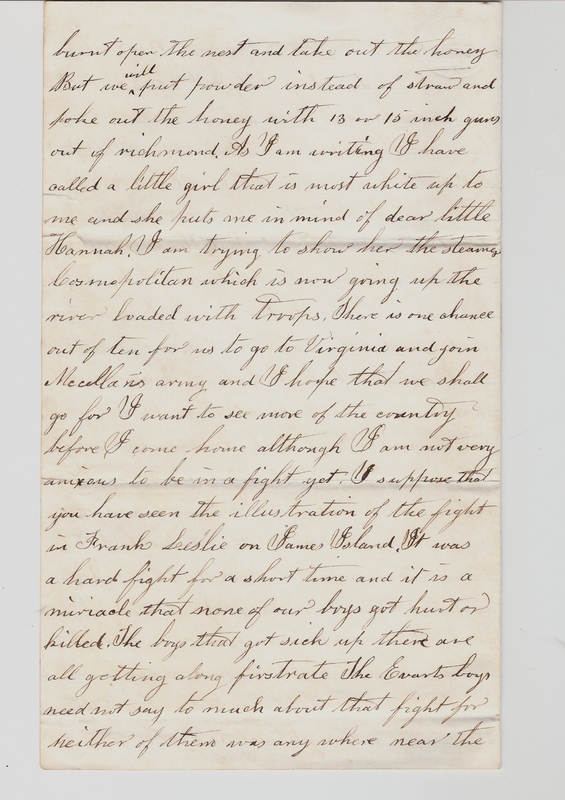 burnt open the nest and take out the honey
But we will put powder instead of straw and
poke out the honey with 13 or 15 inch guns
out of richmond. As I am writing I have
called a little girl that is most white up to
me and she puts me in mind of dear little
Hannah. I am trying to show her the steamer
Cosmopolitan which is now going up the
river loaded with troops. There is one chance
out of ten for us to go to Virginia and join
Mccellans army and I hope that we shall
go for I want to see more of the country
before I come home although I am not very
anixous to be in a fight yet. I suppose that
you have seen the illustration of the fight
in Frank Leslie on James Island. It was
a hard fight for a short time and it is a
miriacle that none of our boys got hurt or
killed. The boys that got sick up there are
all getting along firstrate The Evarts boys
need not say to much about that fight for
neither of them was any where near the